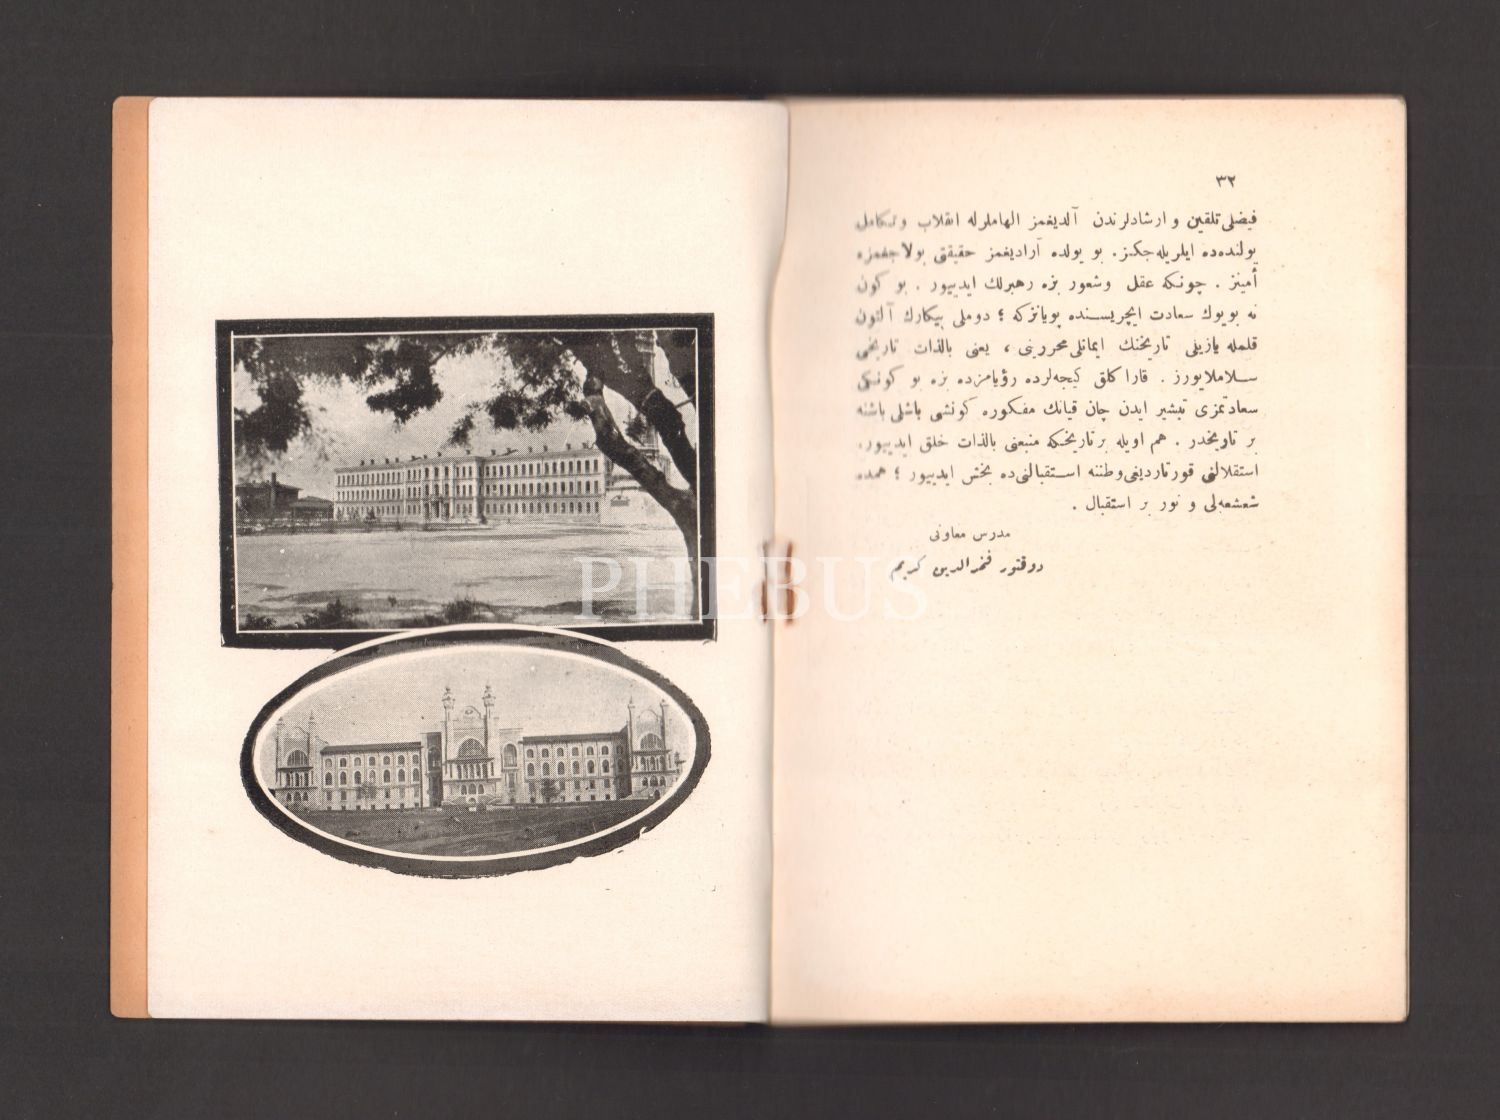 ٣٢
فيضلى تلقين و ارشادلرندن آلديغمز الهاملرله انقلاب و تكامل
يولنده‌ده ايلريله‌جكز. بو يولده آراديغمز حقيقتى بولاجغمزه
أمينز . چونكه عقل وشعور بزه رهبرلك ايدييور . بو كون
نه بويوك سعادت ايچريسنده يويانزكه ؛ دوملى بيكارك آلتون
قلمله يازيلى تاريخنك ايمانلى محررينى ، يعنى بالذات تاريخى
سلاملايورز . قارا كلق كيجه‌لرده رؤيامزده بزه بو كونكى
سعادتمزى تبشير ايدن چان قيانك مفكوره كونشى باشلى باشنه
بر تاريخدر . هم اويله بر تاريخكه منبعنى بالذات خلق ايدييور.
استقلالنى قورتارديغى وطننه استقبالنى‌ده بخش ايدييور ؛ همده
شعشعه‌لى و نور بر استقبال .
مدرس معاونى
دوقتور فخرالدين كريم
PHEBUS